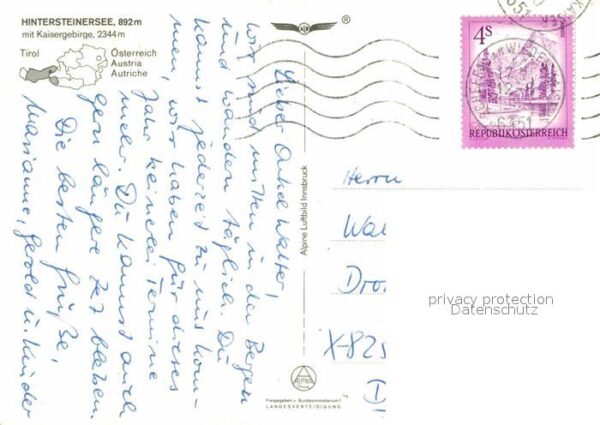 HINTERSTEINERSEE, 892 m
mit Kaisergebirge, 2344 m
Tirol
Österreich
Austria
Autriche
Lieber Onkel Walter,
wir sind mitten in den Bergen
und wandern täglich. Du
kannst jederzeit zu uns kom-
men, wir haben für dieses
Jahr keinerlei Termine
mehr. Du kannst auch
gern längere Zeit bleiben.
Die besten Grüße,
Marianne, Gerold u. Kinder
Alpine Luftbild Innsbruck
Freigegeben v. Bundesministerium f.
LANDESVERTEIDIGUNG
4S
REPUBLIK ÖSTERREICH
6351
Herrn
Wal
Dro
X-825
D
privacy protection
Datenschutz